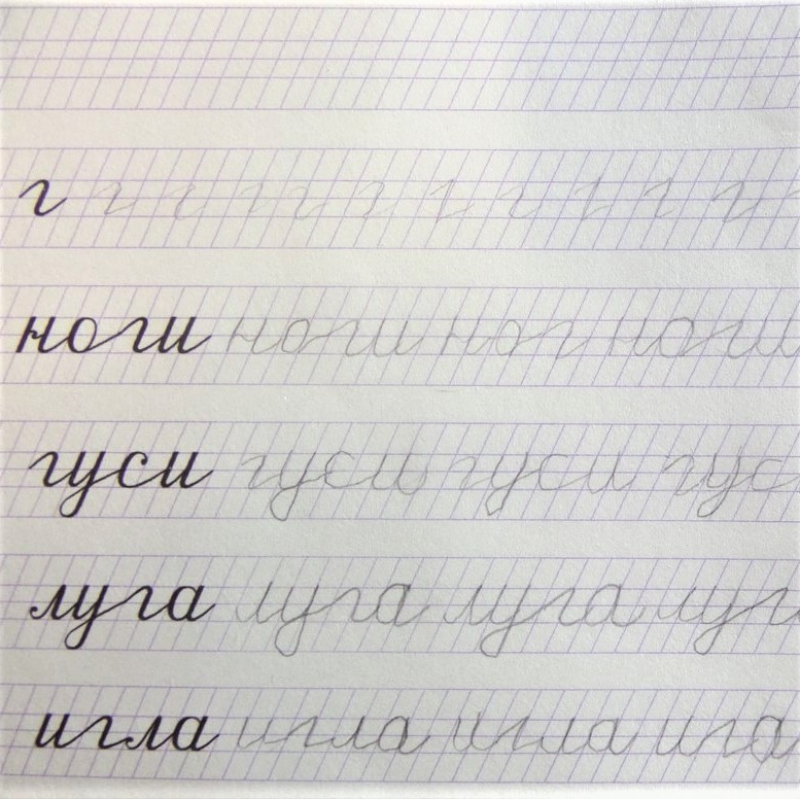 г г г г г г г г г г г
ноги ноги ног ноги
гуси гуси гуси гус
луга луга луга луг
игла игла игла ига